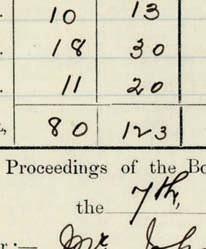 10 13
18 30
11 20
80 123
Proceedings of the Bo
the 7th,
Mr. Joh